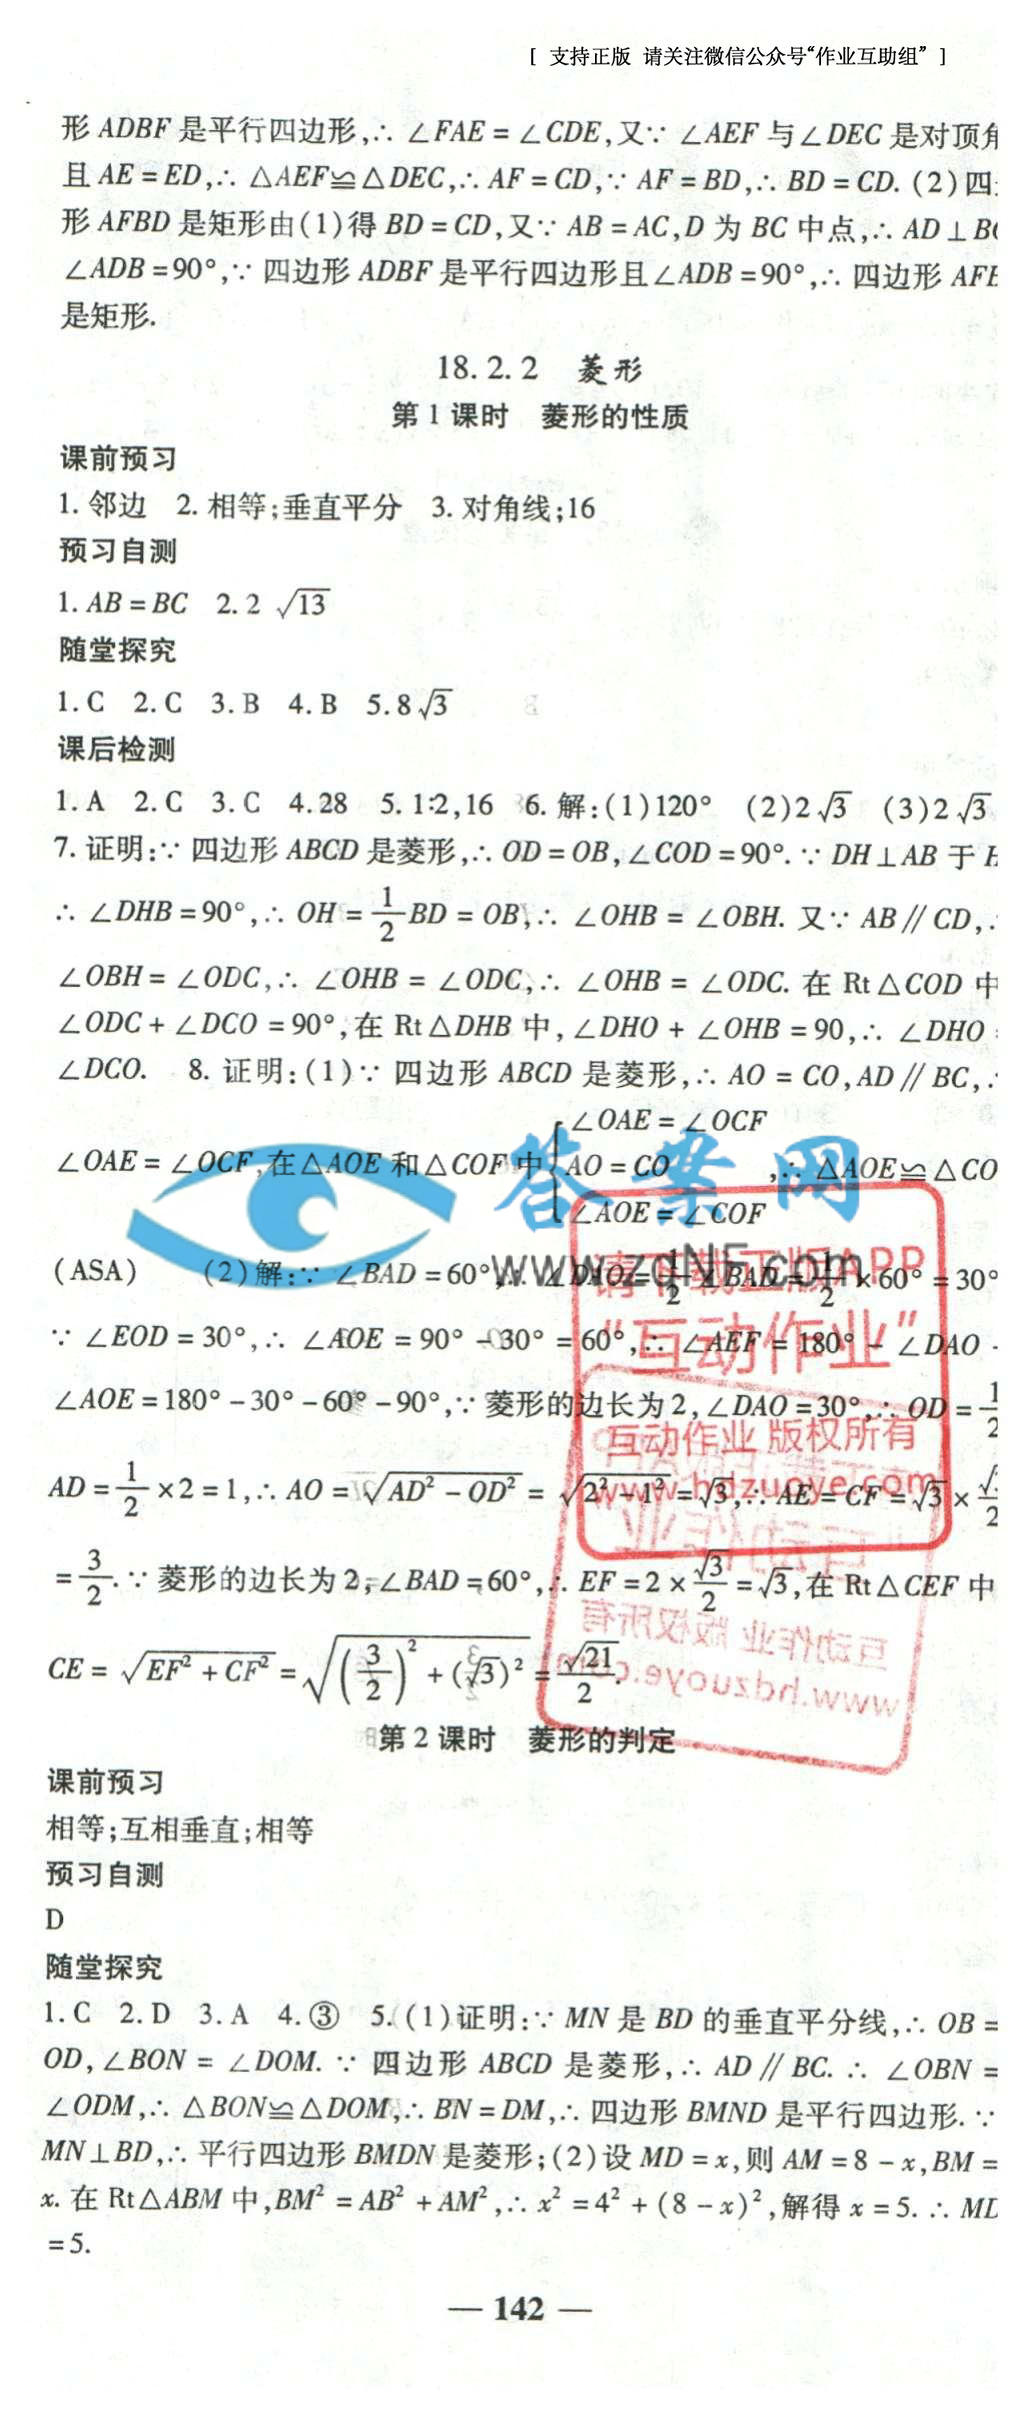 [ 支持正版 请关注微信公众号“作业互助组” ]
形 ADBF 是平行四边形,∴ ∠FAE = ∠CDE,又∵ ∠AEF 与∠DEC 是对顶角
且 AE = ED,∴ △AEF≌△DEC,∴ AF = CD,∵ AF = BD,∴ BD = CD. (2)四
形 AFBD 是矩形由(1)得 BD = CD,又∵ AB = AC,D 为 BC 中点,∴ AD⊥BC
∠ADB = 90°,∵ 四边形 ADBF 是平行四边形且∠ADB = 90°,∴ 四边形 AFB
是矩形.
18.2.2 菱形
第 1 课时 菱形的性质
课前预习
1. 邻边 2. 相等;垂直平分 3. 对角线;16
预习自测
1. AB = BC 2. 2 √13
随堂探究
1. C 2. C 3. B 4. B 5. 8√3
课后检测
1. A 2. C 3. C 4. 28 5. 1∶2,16 6. 解:(1)120° (2)2√3 (3)2√3
7. 证明:∵ 四边形 ABCD 是菱形,∴ OD = OB,∠COD = 90°. ∵ DH⊥AB 于 H
∴ ∠DHB = 90°,∴ OH = 1/2 BD = OB,∴ ∠OHB = ∠OBH. 又∵ AB∥CD,∴
∠OBH = ∠ODC,∴ ∠OHB = ∠ODC,∴ ∠OHB = ∠ODC. 在 Rt△COD 中
∠ODC + ∠DCO = 90°,在 Rt△DHB 中,∠DHO + ∠OHB = 90,∴ ∠DHO =
∠DCO. 8. 证明:(1)∵ 四边形 ABCD 是菱形,∴ AO = CO,AD∥BC,∴
∠OAE = ∠OCF
∠OAE = ∠OCF,在△AOE 和△COF 中{AO = CO ,∴ △AOE≌△CO
∠AOE = ∠COF
答案网
www.zdNF.com
请下载正版APP
(ASA) (2)解:∵ ∠BAD = 60°,∴ ∠DAO = 1/2 ∠BAD = 1/2 × 60° = 30°
∵ ∠EOD = 30°,∴ ∠AOE = 90° - 30° = 60°,∴ ∠AEF = 180° - ∠DAO -
“互动作业”
∠AOE = 180° - 30° - 60° - 90°,∵ 菱形的边长为 2,∠DAO = 30°,∴ OD = 1/2
互动作业 版权所有
www.hdzuoye.com
AD = 1/2 × 2 = 1,∴ AO = √(AD² - OD²) = √(2² - 1²) = √3,∴ AE = CF = √3 ×
= 3/2. ∵ 菱形的边长为 2,∠BAD = 60°,∴ EF = 2 × √3/2 = √3,在 Rt△CEF 中
互动作业 版权所有
www.hdzuoye.com
CE = √(EF² + CF²) = √((3/2)² + (√3)²) = √21/2.
第 2 课时 菱形的判定
课前预习
相等;互相垂直;相等
预习自测
D
随堂探究
1. C 2. D 3. A 4. ③ 5. (1)证明:∵ MN 是 BD 的垂直平分线,∴ OB =
OD,∠BON = ∠DOM. ∵ 四边形 ABCD 是菱形,∴ AD∥BC. ∴ ∠OBN =
∠ODM,∴ △BON≌△DOM,∴ BN = DM,∴ 四边形 BMND 是平行四边形. ∵
MN⊥BD,∴ 平行四边形 BMDN 是菱形;(2)设 MD = x,则 AM = 8 - x,BM =
x. 在 Rt△ABM 中,BM² = AB² + AM²,∴ x² = 4² + (8 - x)²,解得 x = 5. ∴ MD
= 5.
— 142 —